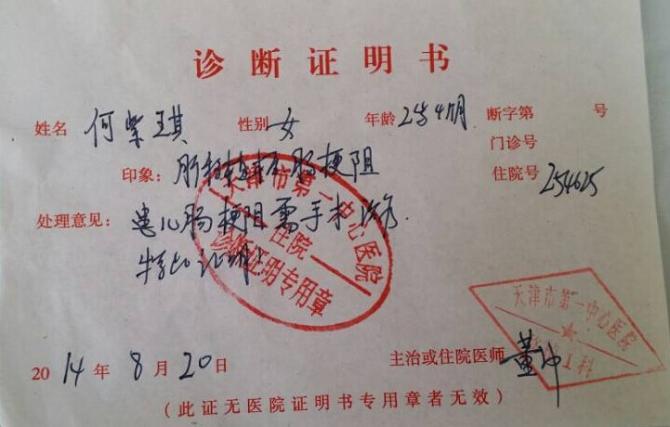 诊断证明书
姓名 何紫琪 性别 女 年龄 2岁4月 断字第 号
门诊号
印象: 肝移植术后 肠梗阻 住院号 254625
处理意见: 患儿肠梗阻需手术治疗.
特此证明
天津市第一中心医院
住院
诊断证明专用章
天津市第一中心医院
2014年8月20日 主治或住院医师 董冲
(此证无医院证明书专用章者无效)